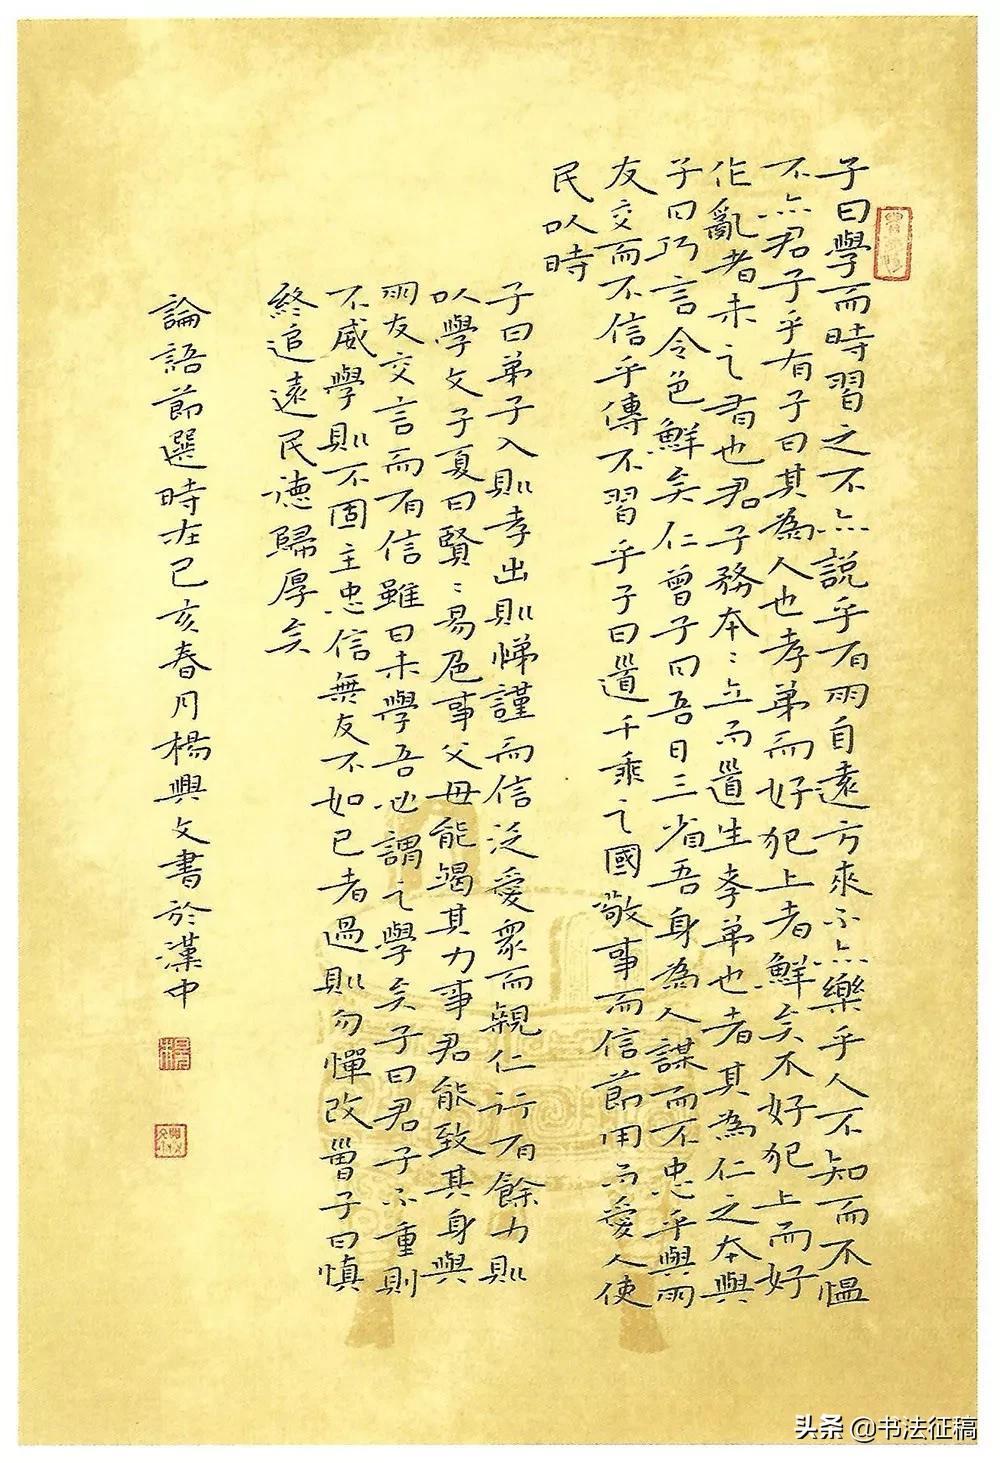 子曰學而時習之不亦説乎有朋自遠方來不亦樂乎人不知而不愠
不亦君子乎有子曰其為人也孝弟而好犯上者鮮矣不好犯上而好
作亂者未之有也君子務本〻立而道生孝弟也者其為仁之本與
子曰巧言令色鮮矣仁曾子曰吾日三省吾身為人謀而不忠乎與朋
友交而不信乎傳不習乎子曰道千乘之國敬事而信節用而愛人使
民以時
子曰弟子入則孝出則悌謹而信泛愛衆而親仁行有餘力則
以學文子夏曰賢〻易色事父母能竭其力事君能致其身與
朋友交言而有信雖曰未學吾必謂之學矣子曰君子不重則
不威學則不固主忠信無友不如己者過則勿憚改曾子曰慎
終追遠民德歸厚矣
論語節選時在己亥春月楊興文書於漢中
头条 @书法征稿